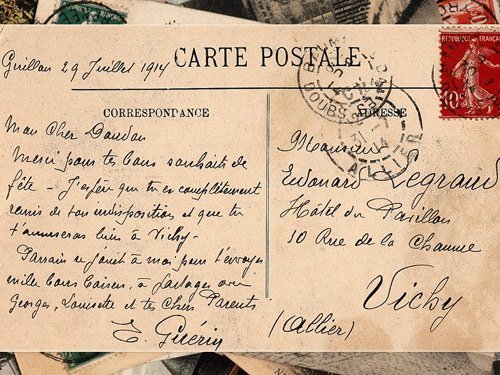 CARTE POSTALE
Guillon 29 Juillet 1914
CORRESPONDANCE
Mon Cher Doudou
Merci pour tes bons souhaits de
fête - J'espère que tu es complètement
remis de ton indisposition et que tu
t'amuseras bien à Vichy -
Parrain se joint à moi pour t'envoyer
mille bons baisers, à partager avec
Georges, et tes chers Parents
E. Guérin
ADRESSE
Monsieur
Edouard Legrand
Hôtel du Pavillon
10 Rue de la Chaume
Vichy
(Allier)
DOUBS
ALLIER
10